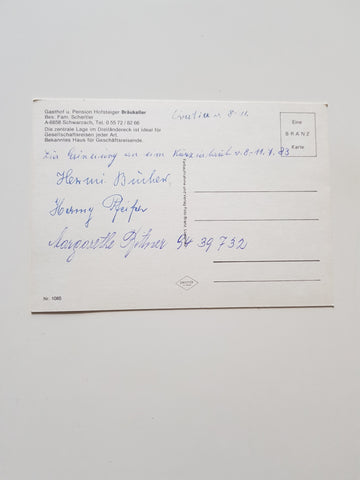 Gasthof u. Pension Hofsteiger Bräukeller
Bes. Fam. Scheffler
A-6858 Schwarzach, Tel. 0 55 72 / 82 66
Die zentrale Lage im Dreiländereck ist ideal für
Gesellschaftsreisen jeder Art.
Bekanntes Haus für Geschäftsreisende.
8-11
Eine
BRANZ
Karte
Zur Erinnerung an v. 8-11. 83
Hermi Bücher,
Hermy Pfeifer
Margarethe 54 39 732
Nr. 1085